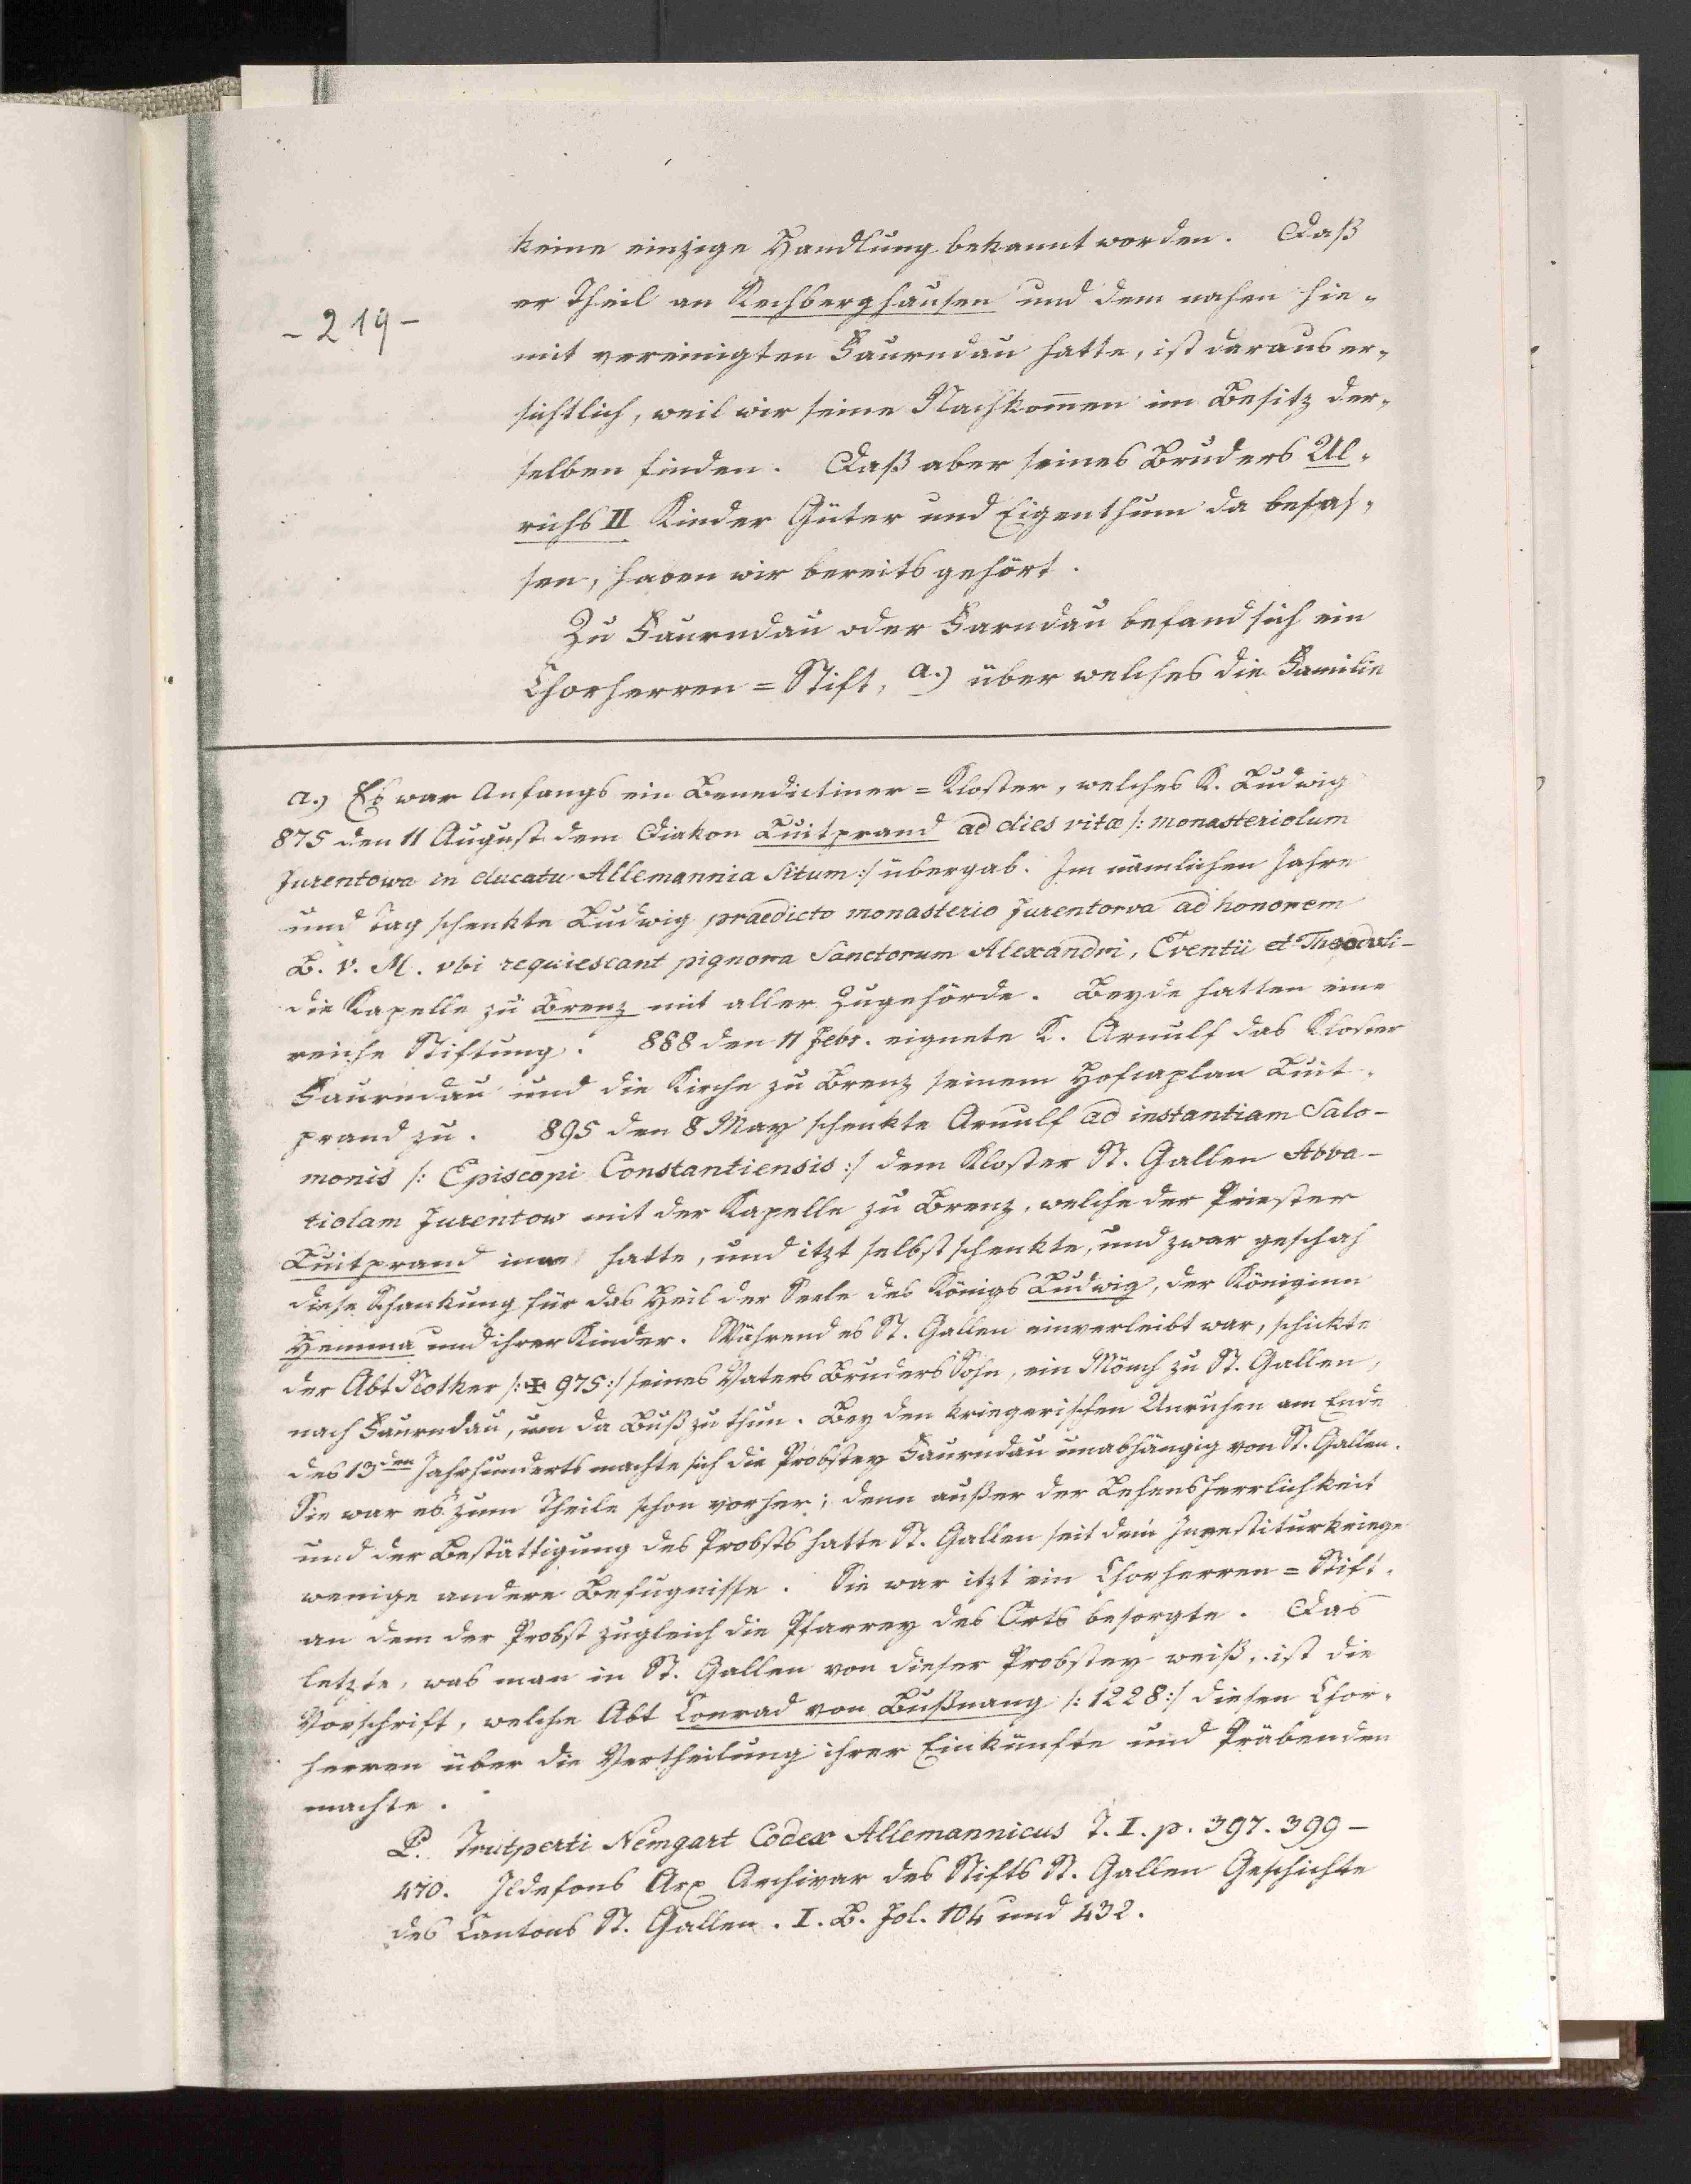 keine einzige Handlung bekannt worden. Daß
er Theil an Rechberghausen und dem nahen hie-
- 219 -
mit vereinigten Faurndau hatte, ist daraus er-
sichtlich, weil wir seine Nachkom̅en im Besitz der-
selben finden. Daß aber seines Bruders Ul-
richs II Kinder Güter und Eigenthum da besas-
sen, haben wir bereits gehört.
Zu Faurndau oder Farndau befand sich ein
Chorherren = Stift, a.) über welches die Familie
a.) Es war Anfangs ein Benedictiner = Kloster, welches K. Ludwig
875 den 11 August dem Diakon Luitprand ad dies vitæ /: monasteriolum
Furentowa in ducatu Allemannia Situm :/ übergab. Im nämlichen Jahre
und Tag schenkte Ludwig praedicto monasterio Furentorva ad honorem
B. V. M. vbi requiescant pignora Sanctorum Alexandri, Eventii et Theoduli -
die Kapelle zu Brenz mit aller Zugehörde. Beyde hatten eine
reiche Stiftung. 888 den 11 Febr. eignete K. Arnulf das Kloster
Faurndau und die Kirche zu Brenz seinem Hofcaplan Luit-
prand zu. 895 den 8 May schenkte Arnulf ad instantiam Salo-
monis /: Episcopi Constantiensis :/ dem Kloster St. Gallen Abba-
tiolam Furentow mit der Kapelle zu Brenz, welche der Priester
Luitprand inne hatte, und itzt selbst schenkte, und zwar geschah
diese Schankung für das Heil der Seele des Königs Ludwig, der Königinn
Hemma und ihrer Kinder. Während es St. Gallen einverleibt war, schickte
der Abt Notker /: ✠ 975 :/ seines Vaters Bruders Sohn, ein Mönch zu St. Gallen,
nach Faurndau, um da Buß zu thun. Bey den kriegerischen Unruhen am Ende
des 13den Jahrhunderts machte sich die Probstey Faurndau unabhängig von St. Gallen.
Sie war es zum Theile schon vorher; denn außer der Lehensherrlichkeit
und der Bestättigung des Probsts hatte St. Gallen seit dem Investiturkriege
wenige andere Befugnisse. Sie war itzt ein Chorherren = Stift,
an dem der Probst zugleich die Pfarrey des Orts besorgte. Das
letzte, was man in St. Gallen von dieser Probstey weiß, ist die
Vorschrift, welche Abt Conrad von Bußnang /: 1228 :/ diesen Chor-
herren über die Vertheilung ihrer Einkünfte und Präbenden
machte.
P. Trutperti Nemgart Codex Allemannicus T. I. p. 397. 399 -
470. Ildefons Arx Archivar des Stifts St. Gallen Geschichte
des Cantons St. Gallen. I. B. Fol. 104 und 432.